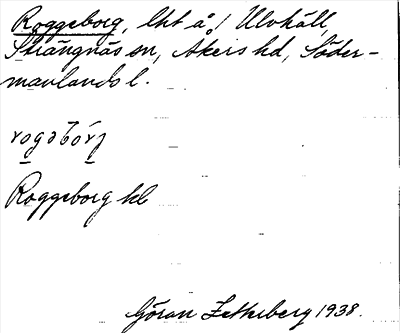 Roggeborg, lht å/ Ulvhäll,
Strängnäs sn, Åkers hd, Söder-
manlands l.
rogəbórj
Roggeborg kb
Göran Zetterberg 1938.